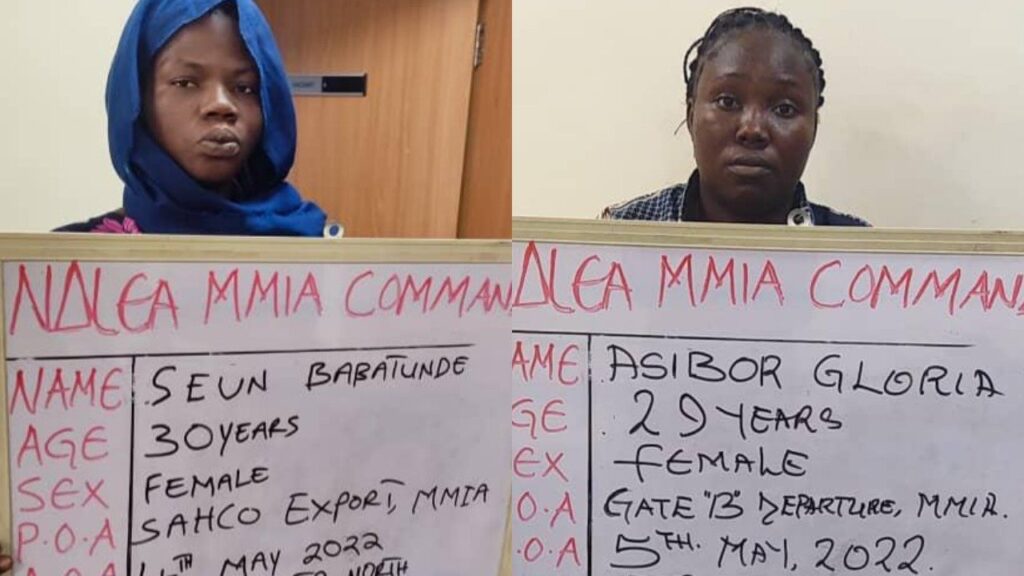 NDLEA MMIA COMMAN
NAME SEUN BABATUNDE
AGE 30 YEARS
SEX FEMALE
P.O.A SAHCO EXPORT, MMIA
MAY 2022
NORTH
DLEA MMIA COMMAN
AME ASIBOR GLORIA
GE 29 YEARS
EX FEMALE
O.A GATE "B" DEPARTURE, MMIA.
.O.A 5TH. MAY, 2022.